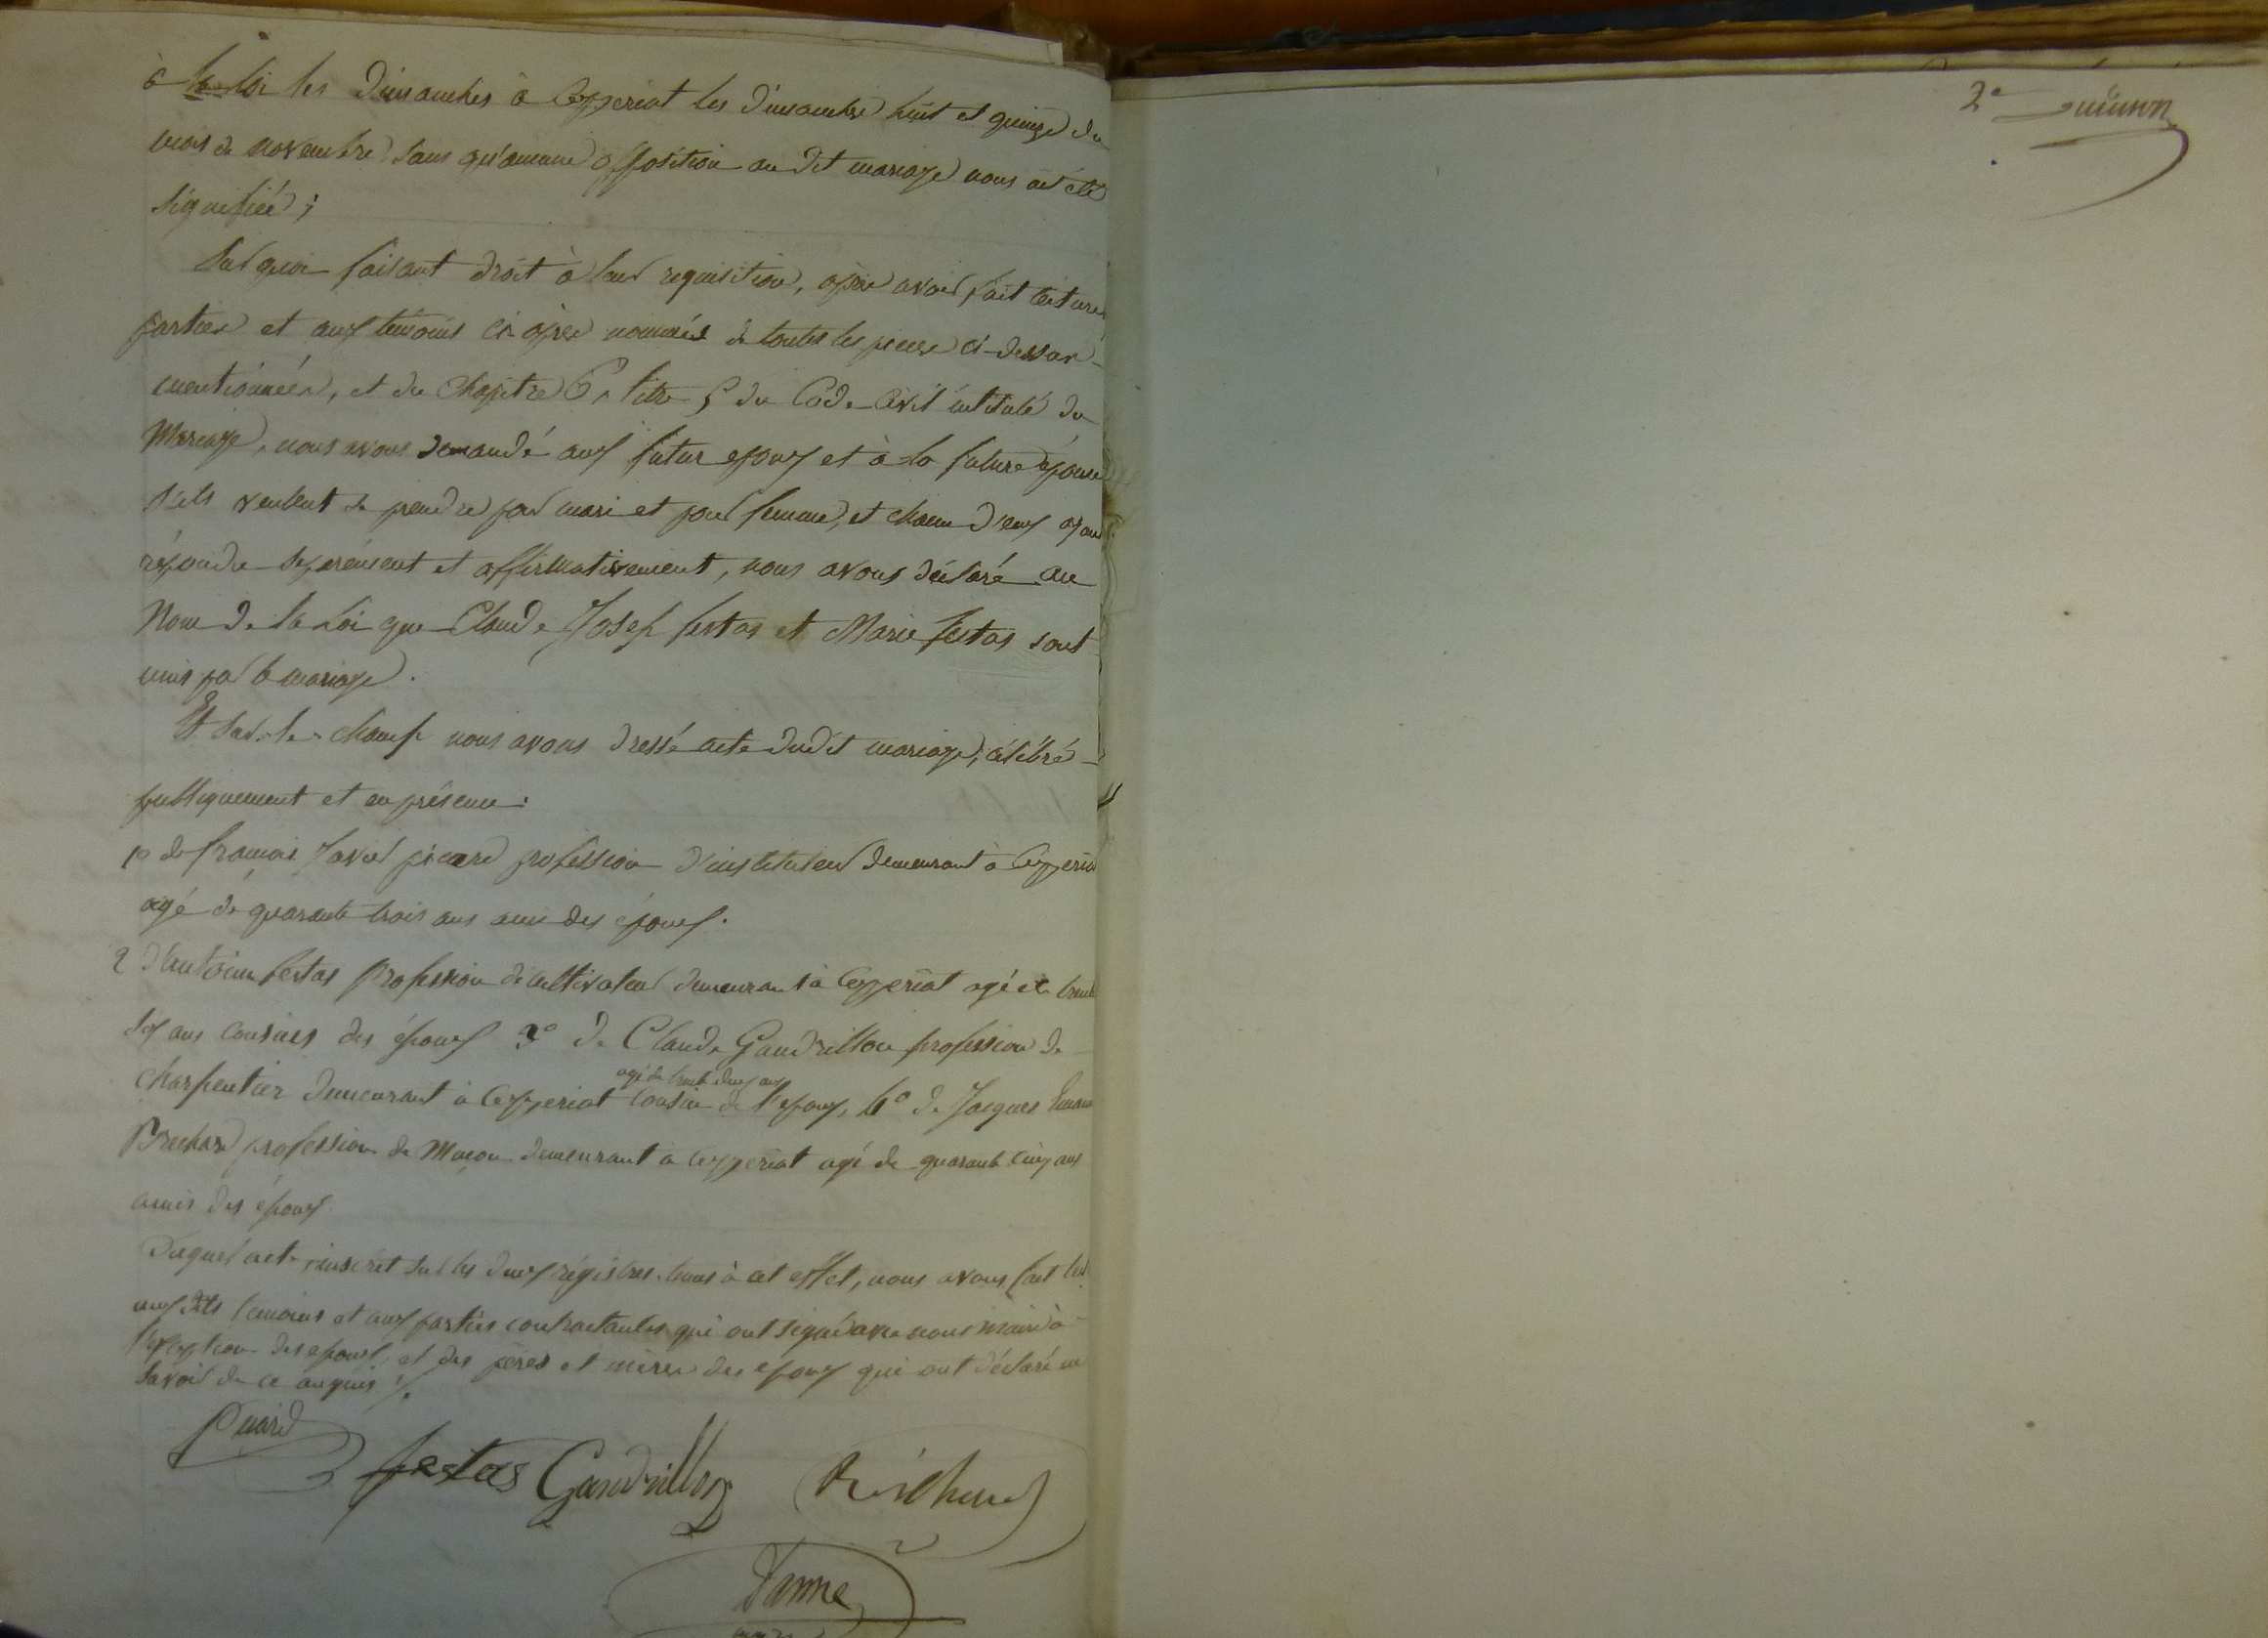 à la loi les Dimanches à Ceyzeriat les dimanches huit et quinze du
mois de novembre sans qu'aucune opposition au dit mariage nous ait été
signifiée ;
Sur quoi faisant droit à leur requisition, après avoir fait lecture
parties et aux temoins ci après nommés de toutes les pieces ci-dessus
mentionnées, et du chapitre 6 titre 5 du Code Civil intitulé du
Mariage, nous avons demandé aux futur epoux et à la future épouse
s'ils veulent se prendre pour mari et pour femme, et chacun d'eux ayant
répondu séparément et affirmativement, nous avons déclaré au
Nom de la loi que Claude Josep festas et Marie festas sont
unis par le mariage.
Et sur-le-champ nous avons dressé acte dudit mariage, célébré
publiquement et en présence :
1o de françois Xavier picard profession d'instituteur demeurant à Ceyzeriat
agé de quarante trois ans ami des époux.
2 d'Antoine festas Profession de cultivateur demeurant à Ceyzeriat agé de trente
six ans cousins des époux 3o de Claude Gandrillon profession de
charpentier demeurant à Ceyzeriat agé de trente deux ans cousin de l'epoux, 4o de Jacques
Brechard profession de Maçon demeurant à Ceyzeriat agé de quarante cinq ans
amis des époux
Duquel acte, inscrit sur les deux régistres tenus à cet effet, nous avons fait
aux dits temoins et aux parties contractantes qui ont signé avec nous maire à
l'exception des epoux, et des pères et mères des epoux qui ont déclaré ne
savoir de ce enquis ./.
Picard
festas Gandrillon
maire
2e